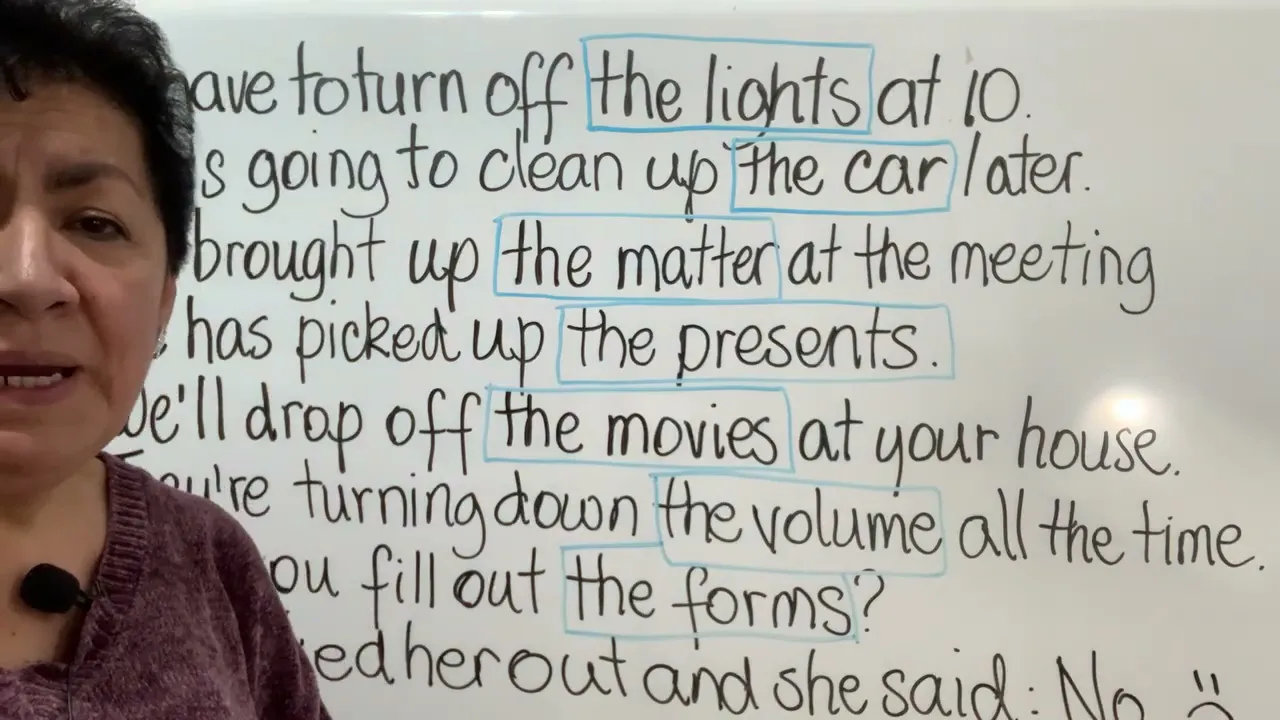 to turn off the lights at 10.
going to clean up the car later.
brought up the matter at the meeting
has picked up the presents.
drop off the movies at your house.
turning down the volume all the time.
fill out the forms?
her out and she said: No